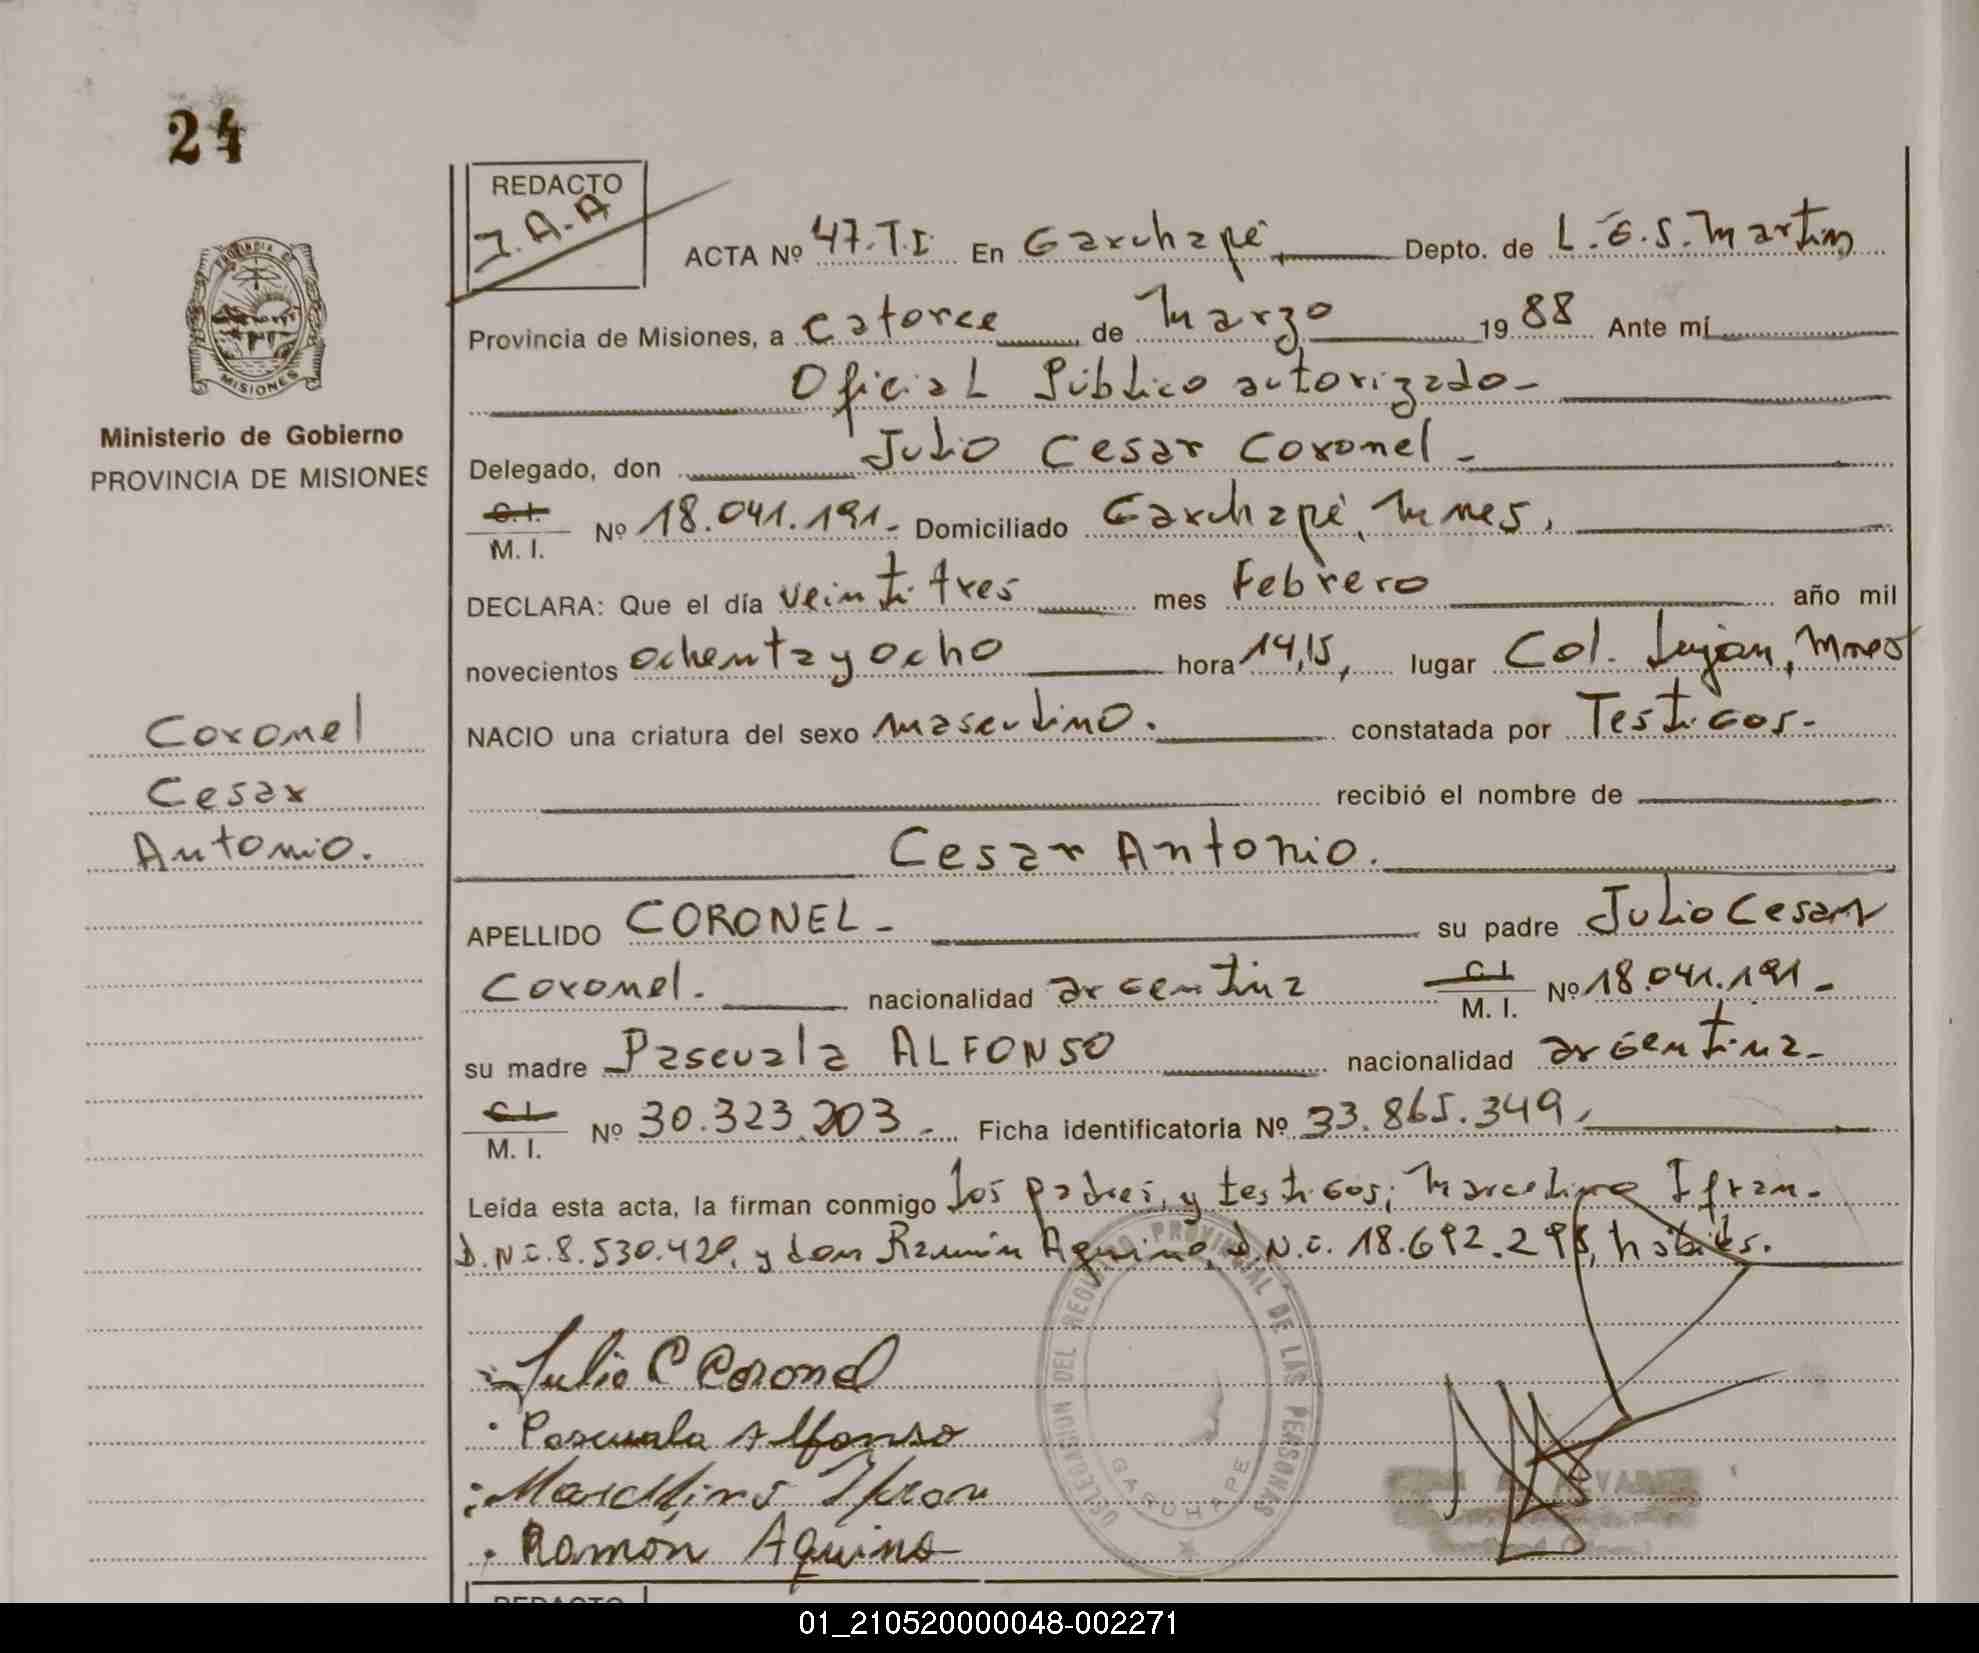 24
REDACTO
J.A.A
ACTA Nº 47.T.I. En Garuhapé Depto. de L.G.S.Martin
PROVINCIA
MISIONES
Provincia de Misiones, a catorce de Marzo 1988 Ante mí
Oficial Público autorizado-
Ministerio de Gobierno
PROVINCIA DE MISIONES
Delegado, don Julio Cesar Coronel-
C.I.
M. I. Nº 18.041.191.- Domiciliado Garuhapé, Mnes,
DECLARA: Que el día veintitres mes Febrero año mil
novecientos ochenta y ocho hora 14,15, lugar Col. Luján, Mnes
NACIO una criatura del sexo masculino. constatada por Testigos-
Coronel
Cesar
Antonio.
recibió el nombre de
Cesar Antonio.
APELLIDO CORONEL- su padre Julio Cesar
Coronel. nacionalidad argentina C.I. M. I. Nº 18.041.191.-
su madre Pascuala ALFONSO nacionalidad argentina-
C.I.
M. I. Nº 30.323.203- Ficha identificatoria Nº 33.865.349,
Leída esta acta, la firman conmigo los padres, y testigos; Marcelino Ifran-
D.N.I. 8.530.429, y don Ramón Aquino, D.N.I. 18.692.298, hábiles.
Julio C Coronel
Pascuala Alfonso
Marcelino Ifran
Ramón Aquino
DELEGACION DEL REGISTRO PROVINCIAL DE LAS PERSONAS
GARUHAPE
REDACTO
01_210520000048-002271